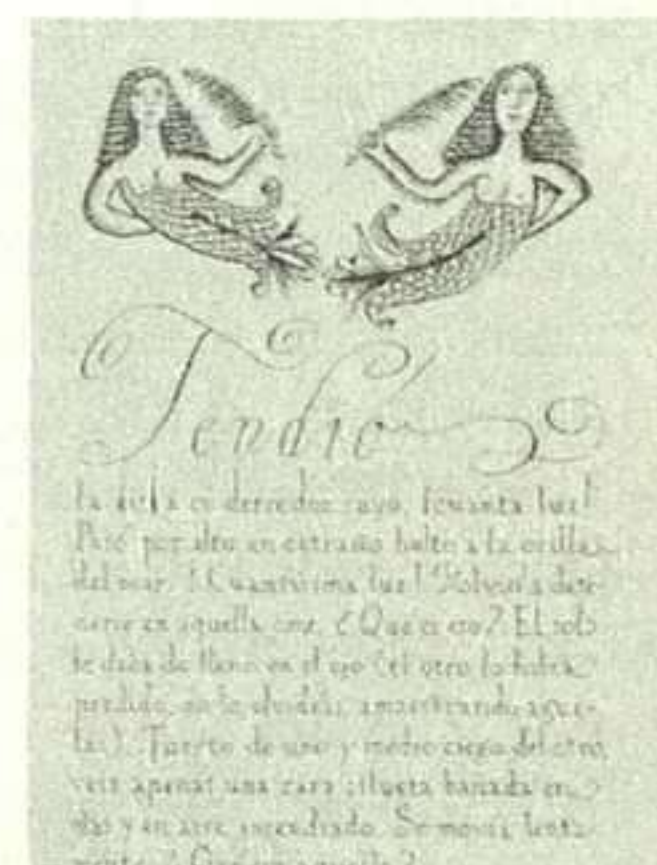 Tendió
la vista en derredor suyo. ¡Cuanta luz!
Pasó por alto un extraño bulto a la orilla
del mar. ¡Cuantísima luz! Volvió a dete-
nerse en aquella cosa. ¿Que es eso? El sol
le daba de lleno en el ojo (el otro lo había
perdido, no lo olvidéis, amaestrando ague-
las). Tuerto de uno y medio ciego del otro,
veía apenas una rara silueta bañada en
olas y en aire incendiado. Se movía lenta-
mente. ¿Qué era aquello?